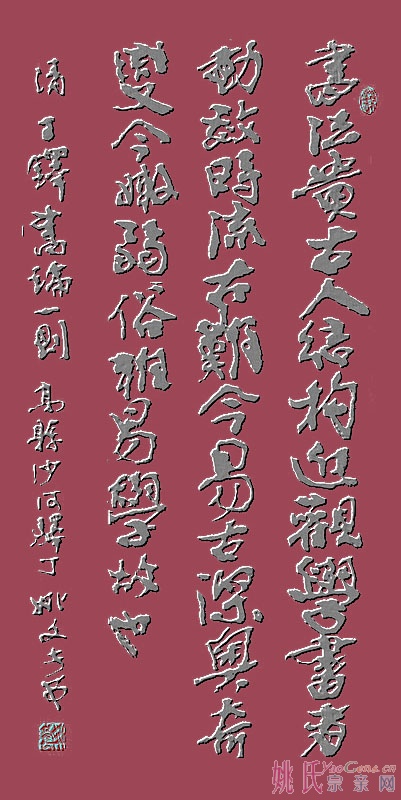 書法貴古人結构近觀學書者
動效時流古難今易古深奧奇
變今嫩弱俗雅易學故也
清王鐸書論一則 高縣沙河驛丁 姚文
姚氏宗亲网